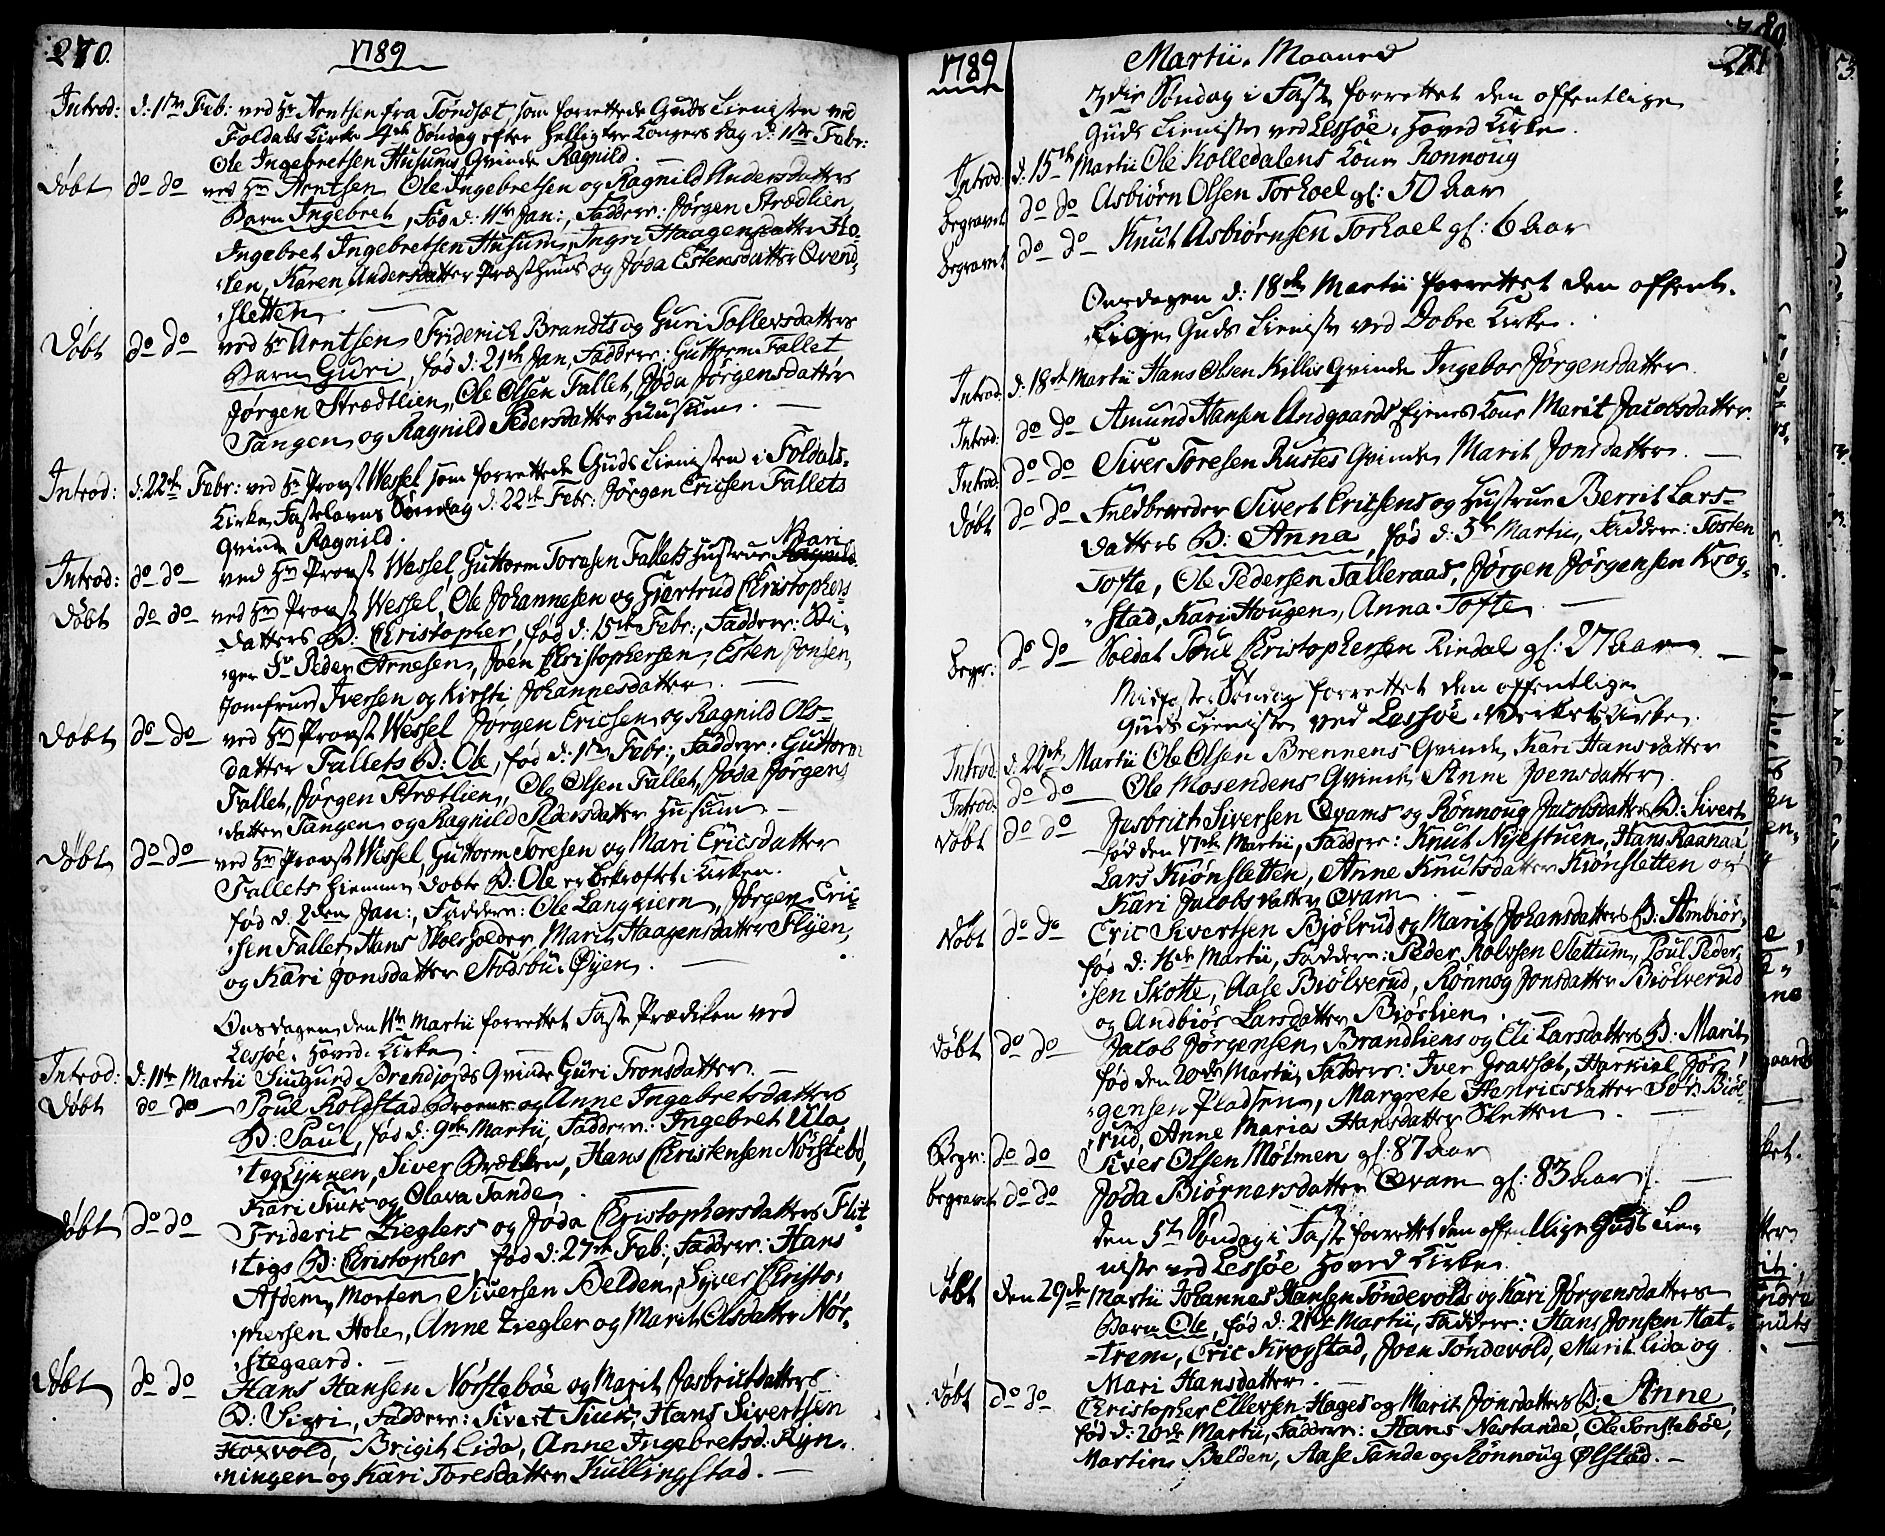 270.
1789
Introd: d: 1ste Feb: ved Hr Arntsen fra Tøndset, som forrettede Guds Tienisten ved
Foldals Kirke 4de Søndag efter Hellig tre Kongers Dag d: 1ste Febr:
Ole Ingebretsen Husums Qvinde Ragnild. —
Døbt do do ved Hr Arntsen Ole Ingebretsen og Ragnild Andersdatters
Barn Ingebret, Fød d: 11te Jan:, Faddere: Jørgen Strædlien,
Ingebret Ingebretsen Husum, Ingri Haagensdatter Ho-
ten, Karen Andersdatter Præsthuus og Jøda Estensdatter Qvend-
sletten. —
Døbt do do ved Hr Arntsen Friderich Brandts og Guri Tollevsdatters
Barn Guri, fød d: 21de Jan, Faddere: Guttorm Fallet
Jørgen Strædtlien, Ole Olsen Fallet, Jøda Jørgensdatter
Tangen og Ragnild Pedersdatter Huusum. —
Introd: d: 22de Febr: ved Hr Provst Wessel som forrettede Guds Tienisten i Foldals-
Kirke Fastelavns Søndag d: 22de Febr: Jørgen Ericsen Fallets
Qvinde Ragnild.
Mari
Introd: do do ved Hr Provst Wessel, Guttorm Toresen Fallets Hustrue Ragnild.
Døbt do do ved Hr Provst Wessel, Ole Johannesen og Giertrud Christophers-
datters B: Christopher, fød d: 15de Febr:, Faddere: Bi-
ger Sr Peder Arnesen, Joen Christophersen, Esten Jonsen,
Jomfrue Iversen og Kirsti Johannesdatter. —
Døbt do do — ved Hr Provst Wessel Jørgen Ericsen og Ragnild Ols-
datter Fallets B: Ole, fød d: 1ste Febr:, Faddere: Guttorm
Fallet, Jørgen Strætlien, Ole Olsen Fallet, Jøda Jørgens-
datter Tangen og Ragnild Pedersdatter Husum —
Døbt do do — ved Hr Provst Wessel, Guttorm Toresen og Mari Ericsdatter
Fallets Hiemme døbte B: Ole er bekræftet i Kirken.
fød d: 2den Jan:, Faddere: Ole Langkiern, Jørgen Eric-
sen Fallet, Hans Skoleholder, Marit Haagensdatter Flyen,
og Kari Jonsdatter Stodsbu-Øyen. —
Onsdagen den 11te Martii forrettet Faste Prædiken ved
Lessøe Hoved-Kirke. —
Introd: d: 11te Martii Siugurd Brendjords Qvinde Guri Tronsdatter. —
Døbt do do — Poul Kolstad Broens og Anne Ingebretsdatters
B: Paul, fød d: 9de Martii, Faddere: Ingebret Ula,
Siver Brekken, Hans Christensen Nørstebø,
Kari Siuk og Olava Tande.
Døbt do do — Frideric Zieglers og Jøda Christophersdatters Flit-
togs B: Christopher, fød d: 27de Feb:, Faddere: Hans
Afdem, Morten Siversen Belden, Syver Christo-
phersen Hole, Anne Ziegler og Marit Olsdatter Nør-
stegaard. —
Døbt do do — Hans Hansen Nørstebøe og Marit Jasbrictsdatters
B: Sigri, Faddere: Sivert Siuk, Hans Sivertsen
Horvold, Brigit Lida, Anne Ingebretsd: Ryn-
ningen og Kari Toresdatter Kullingstad. —
1789 Martii Maaned 271
3die Søndag i Faste forrettet den offentlige
Guds Tieniste ved Lessøe Hoved Kirke.
Introd. d: 15de Martii Ole Kolledalens Kone Ronnoug
Begravet do do Asbiørn Olsen Torhoel gl: 50 Aar
Begravet do do — Knut Asbiørnsen Torhoel gl: 6 Aar
Onsdagen d: 18de Martii forrettet den offent-
lige Guds Tieniste ved Dobre Kirke.
Introd. d: 18de Martii Hans Olsen Killis Qvinde Ingebor Jørgensdatter.
Introd: do do — Amund Hansen Andgaards Eyenes Kone Marit Jacobsdatter
Introd: do do — Siver Toresen Rustes Qvinde Marit Jonsdatter. —
Døbt do do — Fuldbereder Sivert Ericsens og Hustrue Berrit Lars-
datters B: Anna, fød d: 5te Martii, Faddere: Tosten
Tofte, Ole Pedersen Talleraas, Jørgen Jørgensen Krog-
stad, Kari Hougen, Anna Tofte. —
Begr: do do — Soldat Poul Christophersen Rindal gl: 27 Aar —
Midfaste Søndag forrettet den offentlige
Guds Tieniste ved Lessøe-Verkets Kirke.
Introd. d: 22de Martii Ole Olsen Brennens Qvinde Kari Hansdatter
Introd. do do — Ole Mosendens Qvinde Anne Joensdatter.
Døbt do do — Jasbrict Siversen Qvams og Rønnoug Jacobsdatters B: Sivert
fød den 11te Martii, Faddere: Knut Nyestuen, Hans Raanaa
Lars Kiønsletten, Anne Knutsdatter Kiønsletten og
Kari Jacobsdatter Qvam. —
Døbt do do — Eric Sivertsen Biølrud og Marit Johansdatters B: Ambiør,
fød d: 16de Martii, Faddere: Peder Rolvsen Slettum, Poul Peder-
sen Skotte, Aase Biølverud, Rønnog Jonsdatter Biølverud
og Andbiør Larsdatter Biørlien. —
Døbt do do — Jacob Jørgensen Brandliens og Eli Larsdatters B: Marit,
fød den 20de Martii, Faddere: Iver Gravset, Harkial Jør-
gensen Pladsen, Margrete Henricsdatter Biøl-
rud, Anne Maria Hansdatter Sletten. —
Begr: do do Siver Olsen Mølmen gl: 87 Aar
Begravet do do — Jøda Biørnersdatter Qvam gl: 83 Aar. —
Den 5te Søndag i Faste forrettet den offentlige Guds Tie-
niste ved Lessøe Hoved Kirke.
Døbt den 29de Martii Johannes Hansen Tøndevolds og Kari Jørgensdatters
Barn Ole, fød d: 21de Martii, Faddere: Hans Jonsen Hat-
trem, Eric Krogstad, Joen Tøndevold, Marit Lida og
Mari Hansdatter. —
Døbt do do Christopher Ellevsen Hages og Marit Jonsdatters B: Anne,
fød d: 20de Martii, Faddere: Hans Nestande, Ole Torstebøe,
Martin Belden, Aase Tande og Rønnoug Ølstad. —